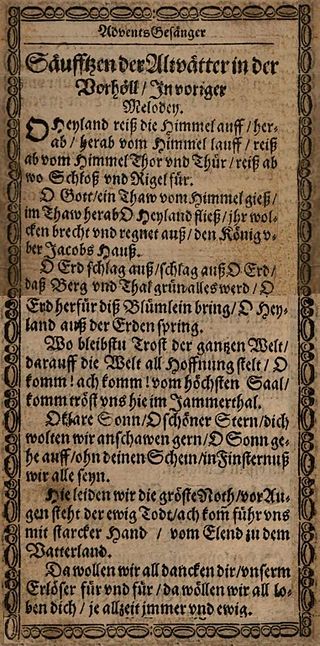 Advents Gesänger
Säufftzen der Altvätter in der
Vorhöll / In voriger
Melodey.
O Heyland reiß die Himmel auff / her-
ab / herab vom Himmel lauff / reiß
ab vom Himmel Thor vnd Thür / reiß ab
wo Schloß vnd Rigel für.
O Gott / ein Thaw vom Himmel gieß /
im Thaw herab O Heyland fließ / jhr wol-
cken brecht vnd regnet auß / den König v-
ber Jacobs Hauß.
O Erd schlag auß / schlag auß O Erd /
daß Berg vnd Thal grün alles werd / O
Erd herfür diß Blümlein bring / O Hey-
land auß der Erden spring.
Wo bleibstu Trost der gantzen Welt /
darauff die Welt all Hoffnung stelt / O
komm! ach komm! vom höchsten Saal /
komm tröst vns hie im Jammerthal.
O klare Sonn / O schöner Stern / dich
wolten wir anschawen gern / O Sonn ge-
he auff / ohn deinen Schein / in Finsternuß
wir alle seyn.
Hie leiden wir die gröste Noth / vor Au-
gen steht der ewig Todt / ach kom̃ führ vns
mit starcker Hand / vom Elend zu dem
Vatterland.
Da wollen wir all dancken dir / vnserm
Erlöser für vnd für / da wöllen wir all lo-
ben dich / je allzeit jmmer vnd ewig.